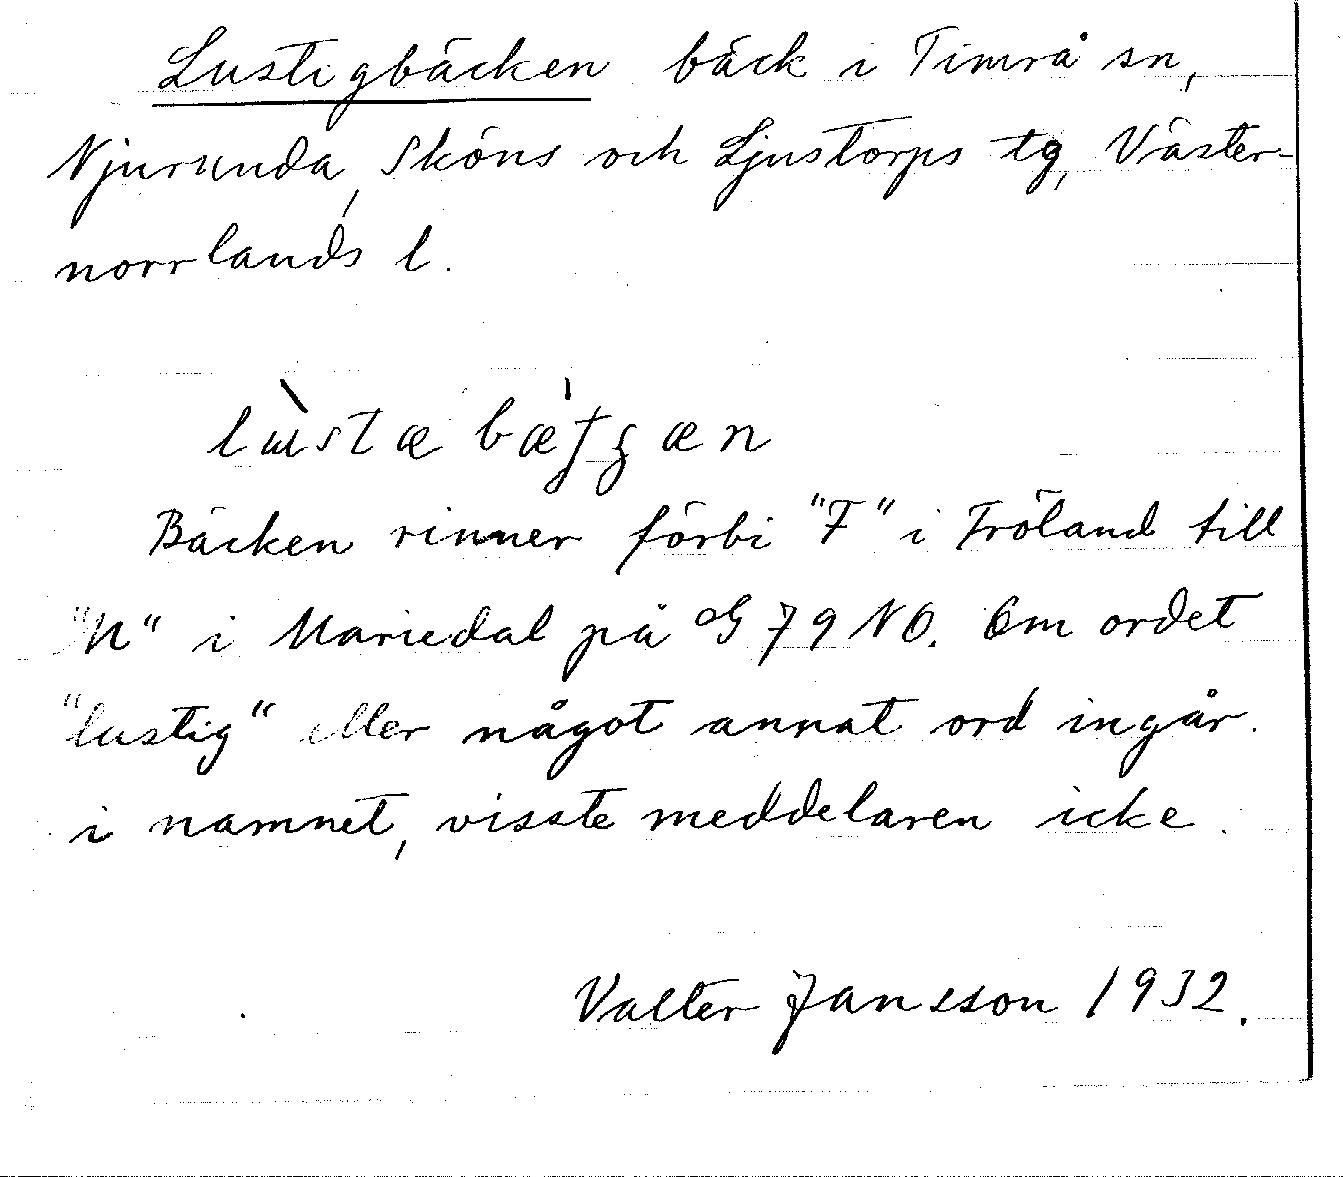 Lustigbäcken bäck i Timrå sn,
Njurunda, Sköns och Ljustorps tg, Väster-
norrlands l.
Bäcken rinner förbi "F" i Fröland till
"N" i Mariedal på G 79 NO. Om ordet
"lustig" eller något annat ord ingår
i namnet, visste meddelaren icke.
Valter Jansson 1932.